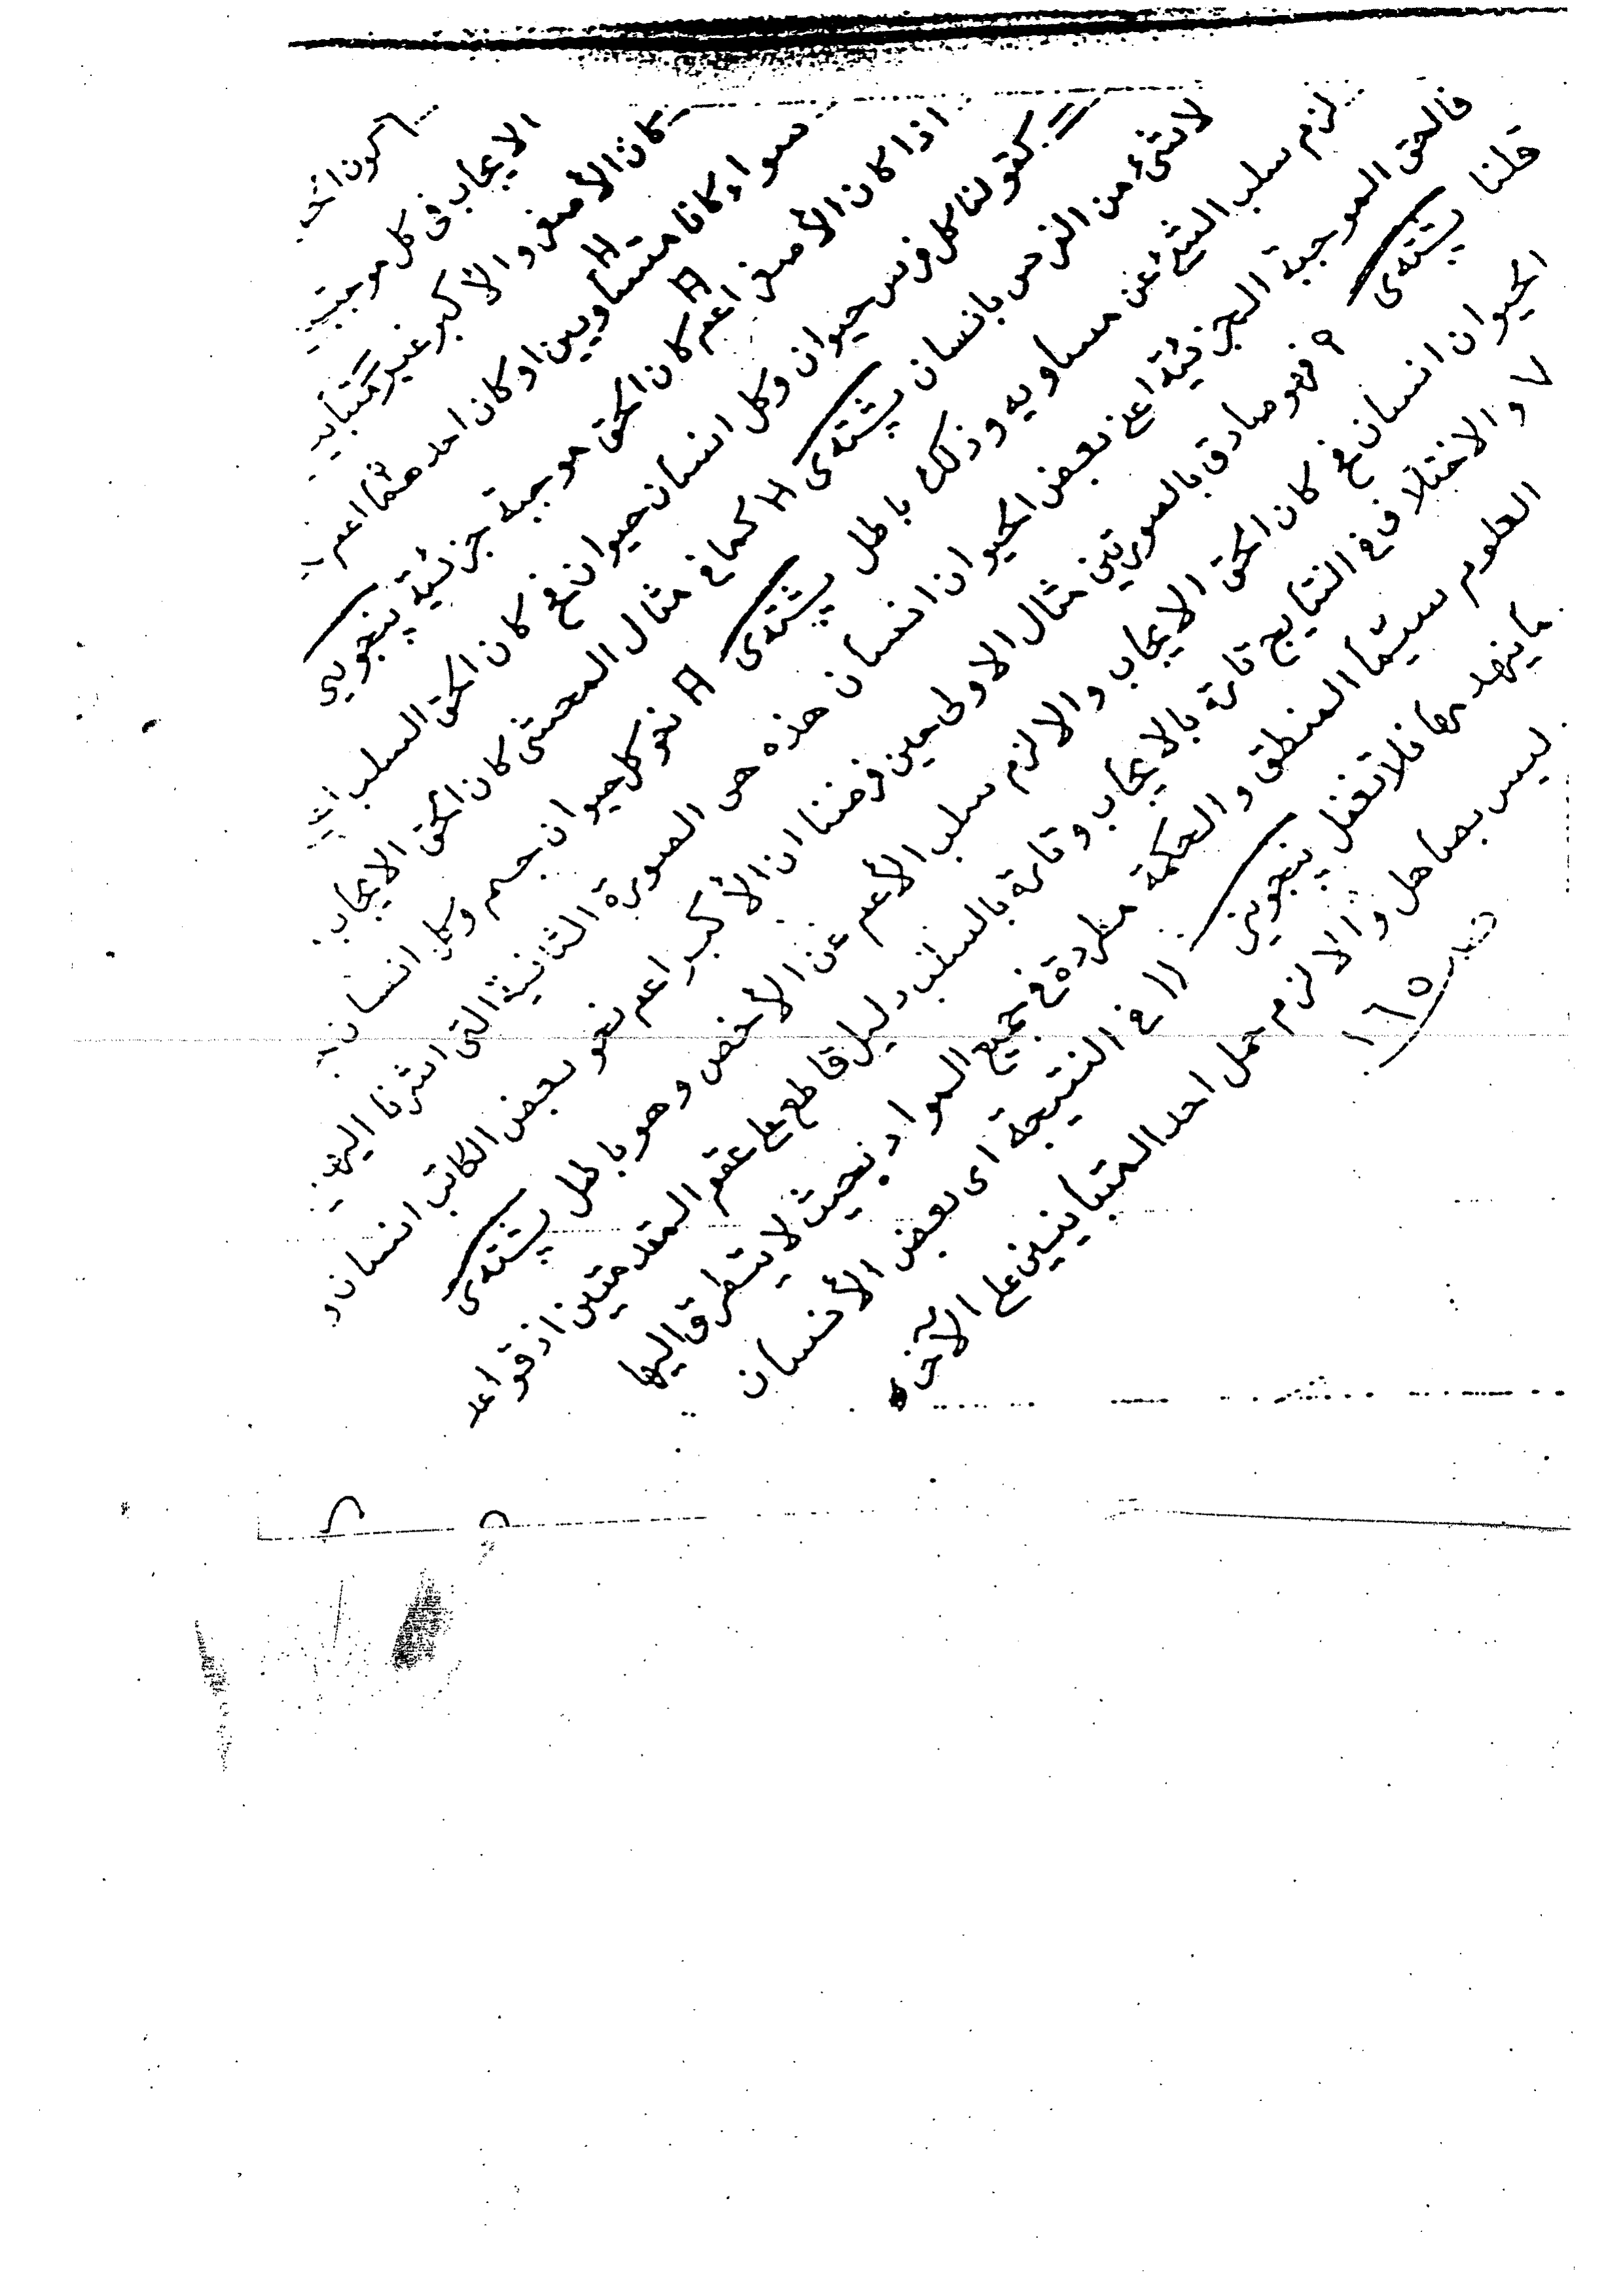 الايجاب فى كل موجبتين
كان الأصغر والأكبر غير متباينين
سواء كانا متساويين او كان احدهما اعم
اذا كان الأصغر اعم كان الحق موجبة جزئية پنجوينى
كقولنا كل فرس حيوان وكل انسان حيوان فح كان الحق السلب
لا شئ من الفرس بانسان پشتدى H كما فى مثال المحشى كان الحق الايجاب
لزم سلب الشئ عن مساويه وذلك باطل پشتدى A نحو كل حيوان جسم وكل انسان
فالحق الموجبة الجزئية اعنى بعض الحيوان انسان هذه هى الصورة الثانية التى اشرنا اليها
قلنا پشتدى ٩ فهو صادق بالصورتين مثال الاولى حين فرضنا ان الأكبر اعم نحو بعض الكاتب انسان و
الحيوان انسان فح كان الحق الايجاب والا لزم سلب الأعم عن الأخص وهو باطل پشتدى
٧ والاختلاف فى النتايج تارة بالايجاب وتارة بالسلب دليل قاطع على عقم المقدمتين اذ قواعد
العلوم سيما المنطق والحكمة مطردة فى جميع المواد بحيث لا يتطرق اليها
ما ينهد بها فلا تغفل پنجوينى \\ فى النتيجة اى بعض الأنسان
ليس بصاهل والا لزم حمل احد المتباينين على الآخر